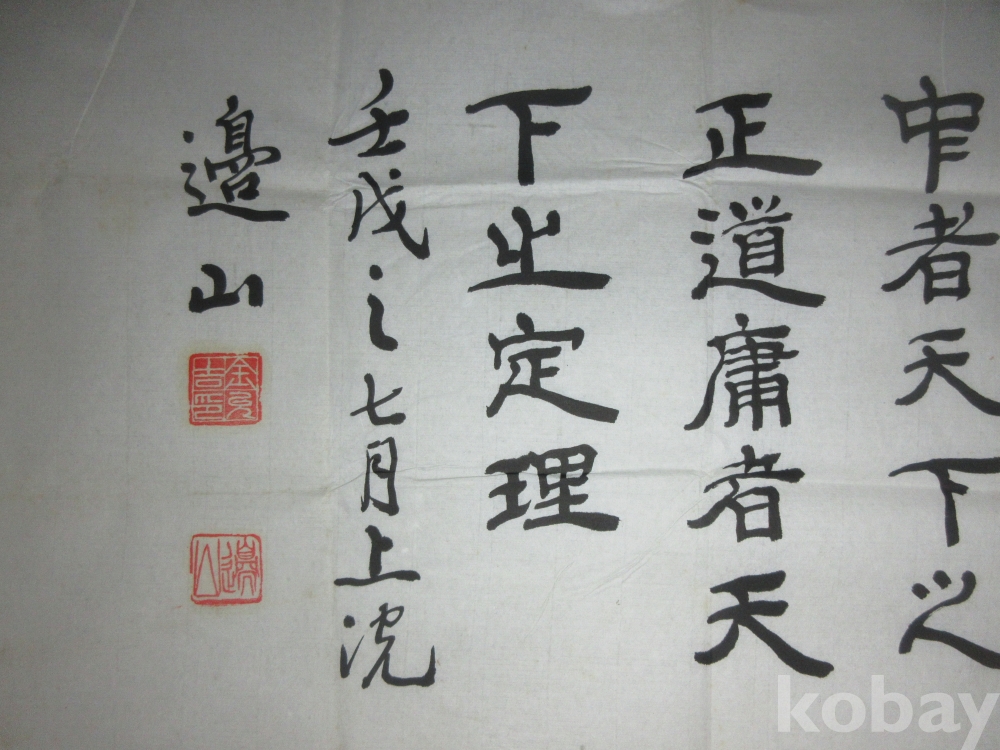 中者天下之
正道庸者天
下之定理
壬戌之七月上浣
邊山
金 吉印
邊山
kobay